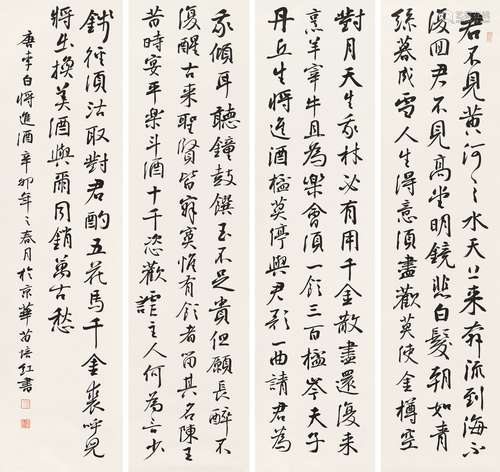 君不見黃河之水天上來奔流到海不
復回君不見高堂明鏡悲白髮朝如青
絲暮成雪人生得意須盡歡莫使金樽空
對月天生我材必有用千金散盡還復來
烹羊宰牛且為樂會須一飲三百杯岑夫子
丹丘生將進酒杯莫停與君歌一曲請君為
我傾耳聽鐘鼓饌玉不足貴但願長醉不
復醒古來聖賢皆寂寞惟有飲者留其名陳王
昔時宴平樂斗酒十千恣歡謔主人何為言少
錢徑須沽取對君酌五花馬千金裘呼兒
將出換美酒與爾同銷萬古愁
唐李白將進酒辛卯年之春月於京華苗培紅書